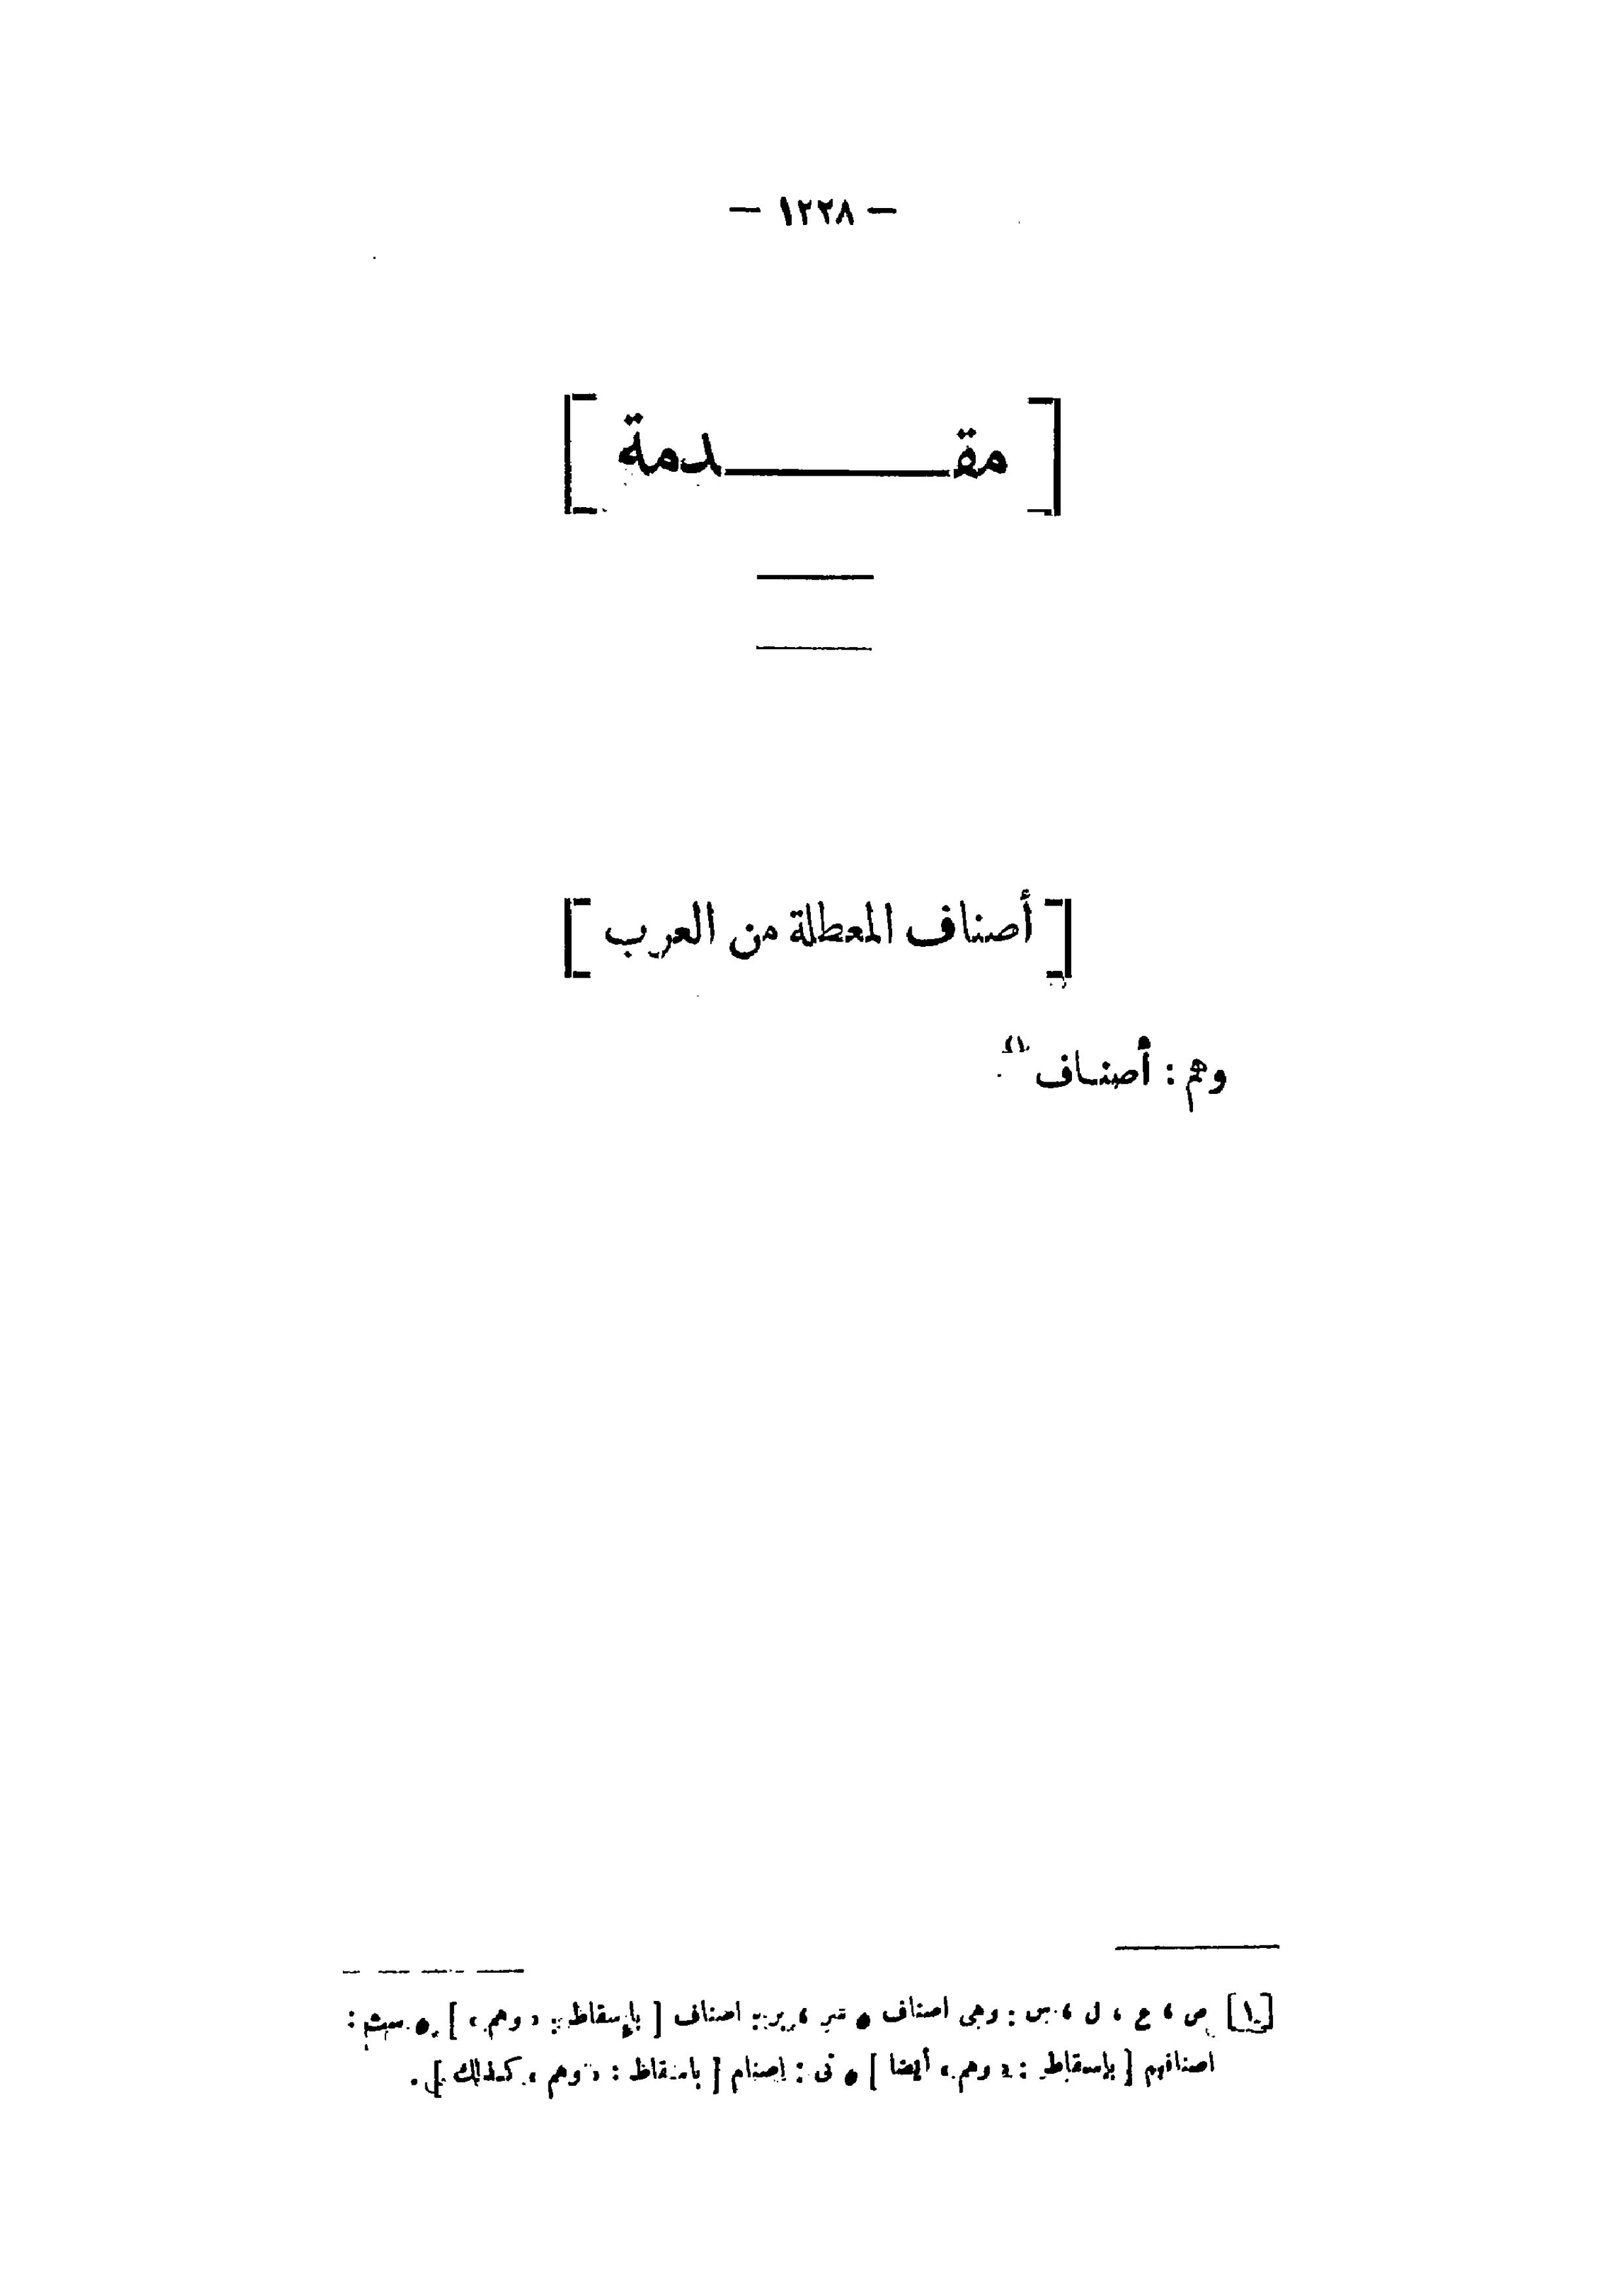 — ١٢٢٨ —
[ مقـــــــدمة ]
[ أصناف المعطلة من العرب ]
وهم : أصنـاف (١)
[١] ص ، ع ، ل ، س : وهى اصناف • اصناف [ بإسقاط : « وهم » ] •
اصنافهم [ بإسقاط : « وهم » أيضا ] • نى : اصنام [ باسقاط : « وهم » كـذلك ] .